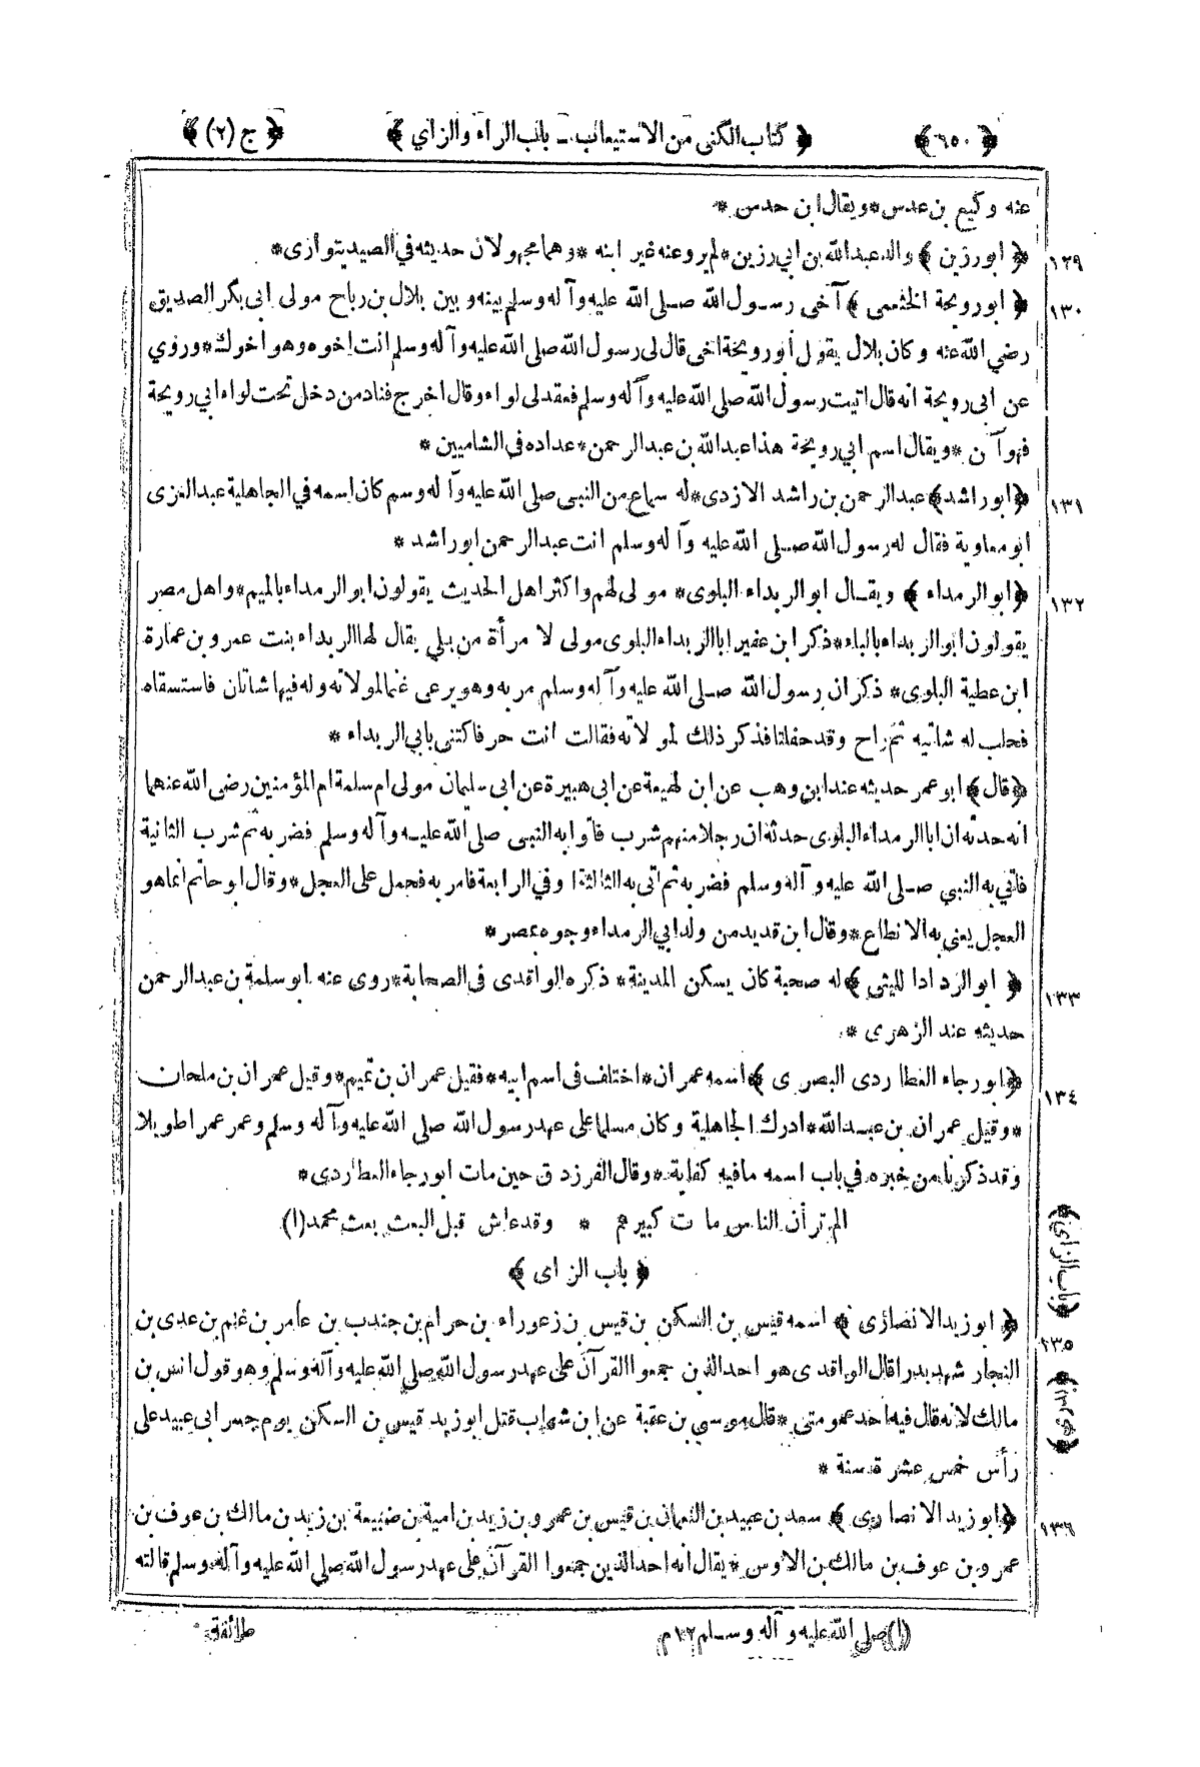 ﴿٦٥٠﴾ ﴿ كتاب الكنى من الاستيعاب ـ باب الراء والزاي ﴾ ﴿ ج (٢) ﴾
عنه وكيع بن عدس * ويقال ابن حدس *
١٢٩ ﴿ ابورزين ﴾ والد عبدالله بن ابي رزين * لم يروعنه غير ابنه * وهما مجهولان حديثه في الصيد يتوارى *
١٣٠ ﴿ ابورويحة الخثعمى ﴾ آخى رسول الله صلى الله عليه وآله وسلم بينه وبين بلال بن رباح مولى ابى بكر الصديق
رضي الله عنه وكان بلال يقول ابورويحة اخى قال لى رسول الله صلى الله عليه وآله وسلم انت اخوه وهو اخوك * وروي
عن ابى رويحة انه قال اتيت رسول الله صلى الله عليه وآله وسلم فعقد لى لواء وقال اخرج فناد من دخل تحت لواء ابي رويحة
فهو آمن * ويقال اسم ابي رويحة هذا عبدالله بن عبدالرحمن * عداده فى الشاميين *
١٣١ ﴿ ابوراشد ﴾ عبدالرحمن بن راشد الازدى * له سماع من النبى صلى الله عليه وآله وسم كان اسمه في الجاهلية عبدالعزى
ابومعاوية فقال له رسول الله صلى الله عليه وآله وسلم انت عبدالرحمن ابوراشد *
١٣٢ ﴿ ابوالرمداء ﴾ ويقال ابوالربداء البلوى * مولى لهم واكثر اهل الحديث يقولون ابوالرمداء بالميم * واهل مصر
يقولون ابوالربداء بالباء * ذكر ابن عفير اباالربداء البلوى مولى لامرأة من بلي يقال لها الربداء بنت عمرو بن عمارة
ابن عطية البلوى * ذكر ان رسول الله صلى الله عليه وآله وسلم مر به وهو يرعى غنما لمولاته وله فيها شاتان فاستسقاه
فحلب له شاتيه ثم راح وقد حفلتا فذكر ذلك لمولاته فقالت انت حر فاكتنى بابي الربداء *
﴿ قال ﴾ ابوعمر حديثه عند ابن وهب عن ابن لهيعة عن ابى هبيرة عن ابى سليمان مولى ام سلمة ام المؤمنين رضى الله عنهما
انه حدثه ان اباالرمداء البلوى حدثه ان رجلا منهم شرب فاتوا به النبى صلى الله عليه وآله وسلم فضربه ثم شرب الثانية
فاتي به النبي صلى الله عليه وآله وسلم فضربه ثم اتى به الثالثة او في الرابعة فامر به فحمل على العجل * وقال ابوحاتم انما هو
العجل يعنى به الانطاع * وقال ابن قديد من ولد ابي الرمداء وجوه بمصر *
١٣٣ ﴿ ابوالرداد الليثى ﴾ له صحبة كان يسكن المدينة * ذكره الواقدى فى الصحابة * روى عنه ابوسلمة بن عبدالرحمن
حديثه عند الزهرى *
١٣٤ ﴿ ابورجاء العطاردى البصرى ﴾ اسمه عمران * اختلف فى اسم ابيه * فقيل عمران بن تميم * وقيل عمران بن ملحان
* وقيل عمران بن عبدالله * ادرك الجاهلية وكان مسلما على عهد رسول الله صلى الله عليه وآله وسلم وعمر عمرا طويلا
وقد ذكرنا من خبره في باب اسمه مافيه كفاية * وقال الفرزدق حين مات ابورجاء العطاردى *
الم تر أن الناس مات كبيرهم * وقد عاش قبل البعث بعث محمد (١)
﴿ باب الزاى ﴾
﴿ باب الزاي ﴾
١٣٥ ﴿ ابوزيد الانصارى ﴾ اسمه قيس بن السكن بن قيس بن زعوراء بن حرام بن جندب بن عامر بن غنم بن عدى بن
النجار شهد بدرا قال الواقدى هو احد الذين جمعوا القرآن على عهد رسول الله صلى الله عليه وآله وسلم وهو قول انس بن
مالك لانه قال فيه احد عمومتى * قال موسى بن عقبة عن ابن شهاب قتل ابوزيد قيس بن السكن يوم جسر ابى عبيد على
رأس خمس عشرة سنة *
١٣٦ ﴿ ابوزيد الانصارى ﴾ سعد بن عبيد بن النعمان بن قيس بن عمرو بن زيد بن امية بن ضبيعة بن زيد بن مالك بن عوف بن
عمرو بن عوف بن مالك بن الاوس * يقال انه احد الذين جمعوا القرآن على عهد رسول الله صلى الله عليه وآله وسلم قالته
(١) صلى الله عليه وآله وسلم ١٢ م
طائفة